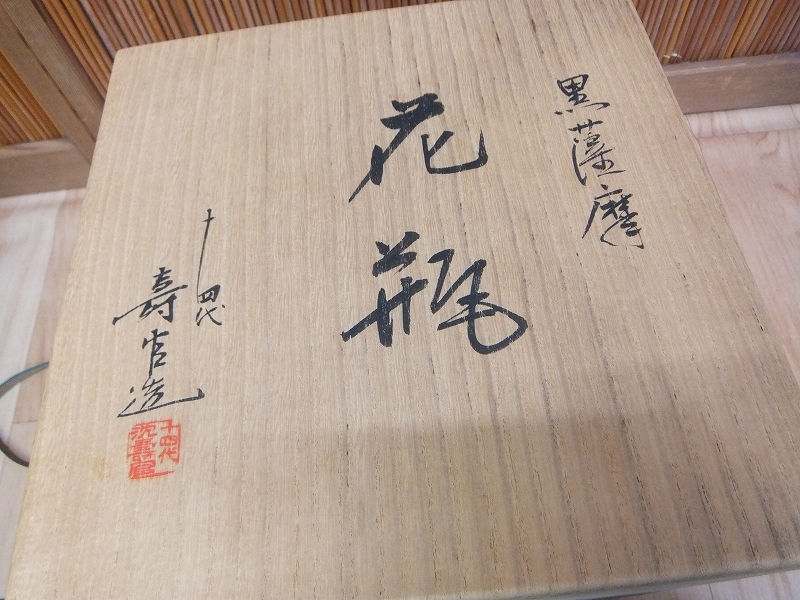 黒薩摩
花瓶
十四代
壽官造
十四代
沈壽官